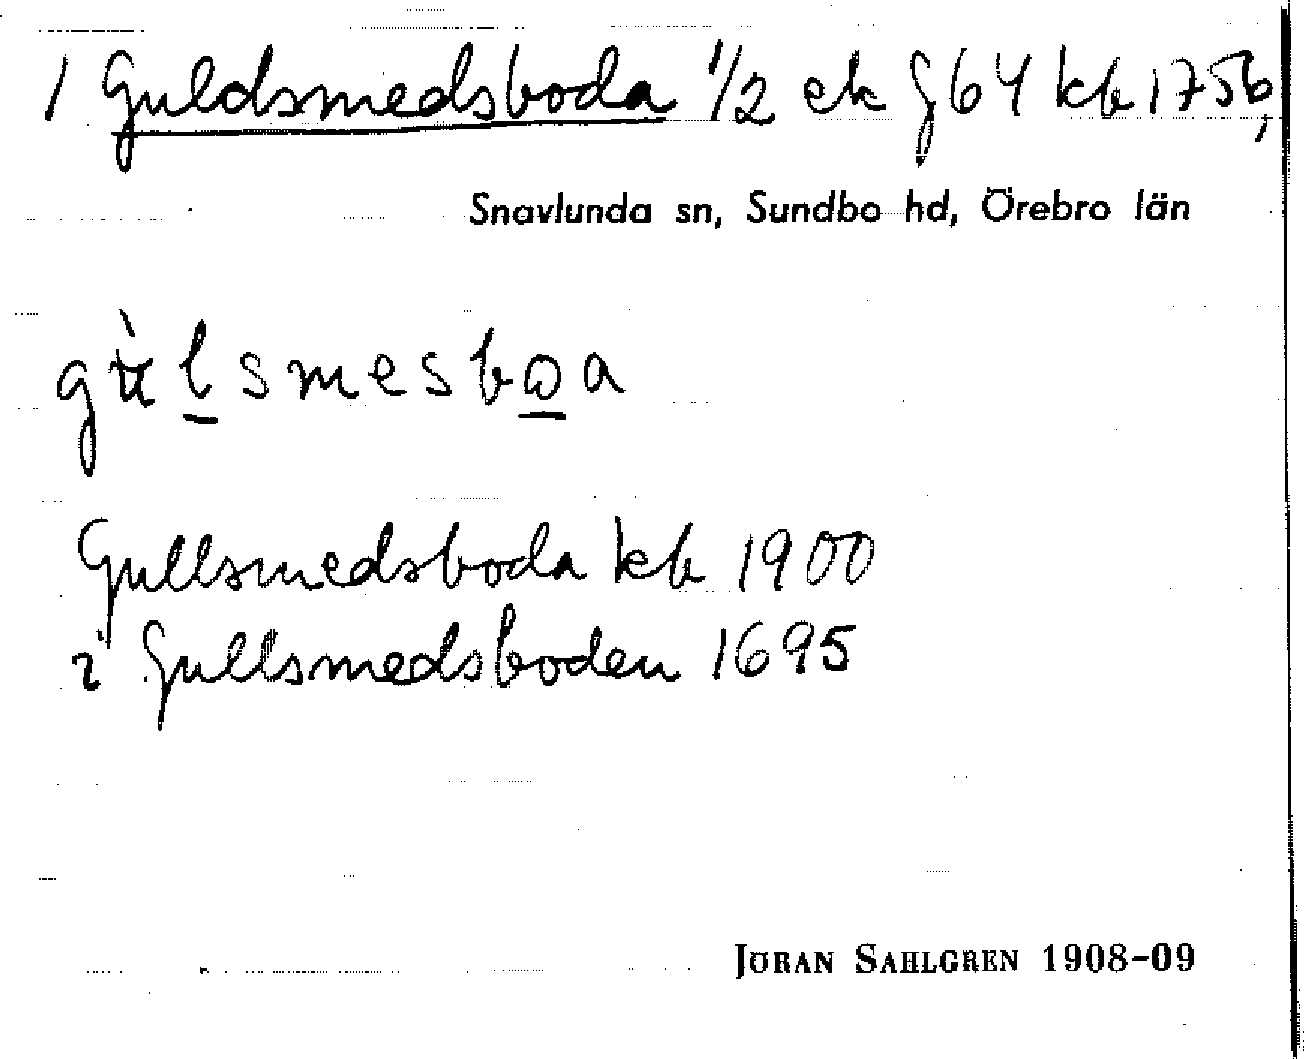 1 Guldsmedsboda 1/2 ek J64 kb 1756,
Snavlunda sn, Sundbo hd, Örebro län
gʉ̀lsmesboa
Gullsmedsboda kb 1900
i Gullsmedsboden 1695
JÖRAN SAHLGREN 1908-09